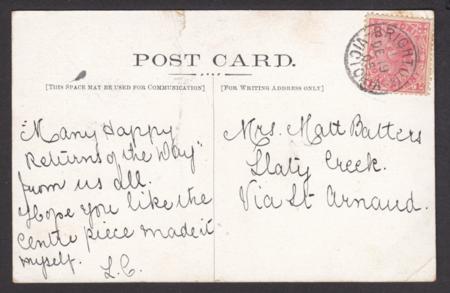 POST CARD.
[THIS SPACE MAY BE USED FOR COMMUNICATION]
"Many Happy
Returns of the Day"
from us all.
Hope you like the
centre piece made it
myself.
L.C.
[FOR WRITING ADDRESS ONLY]
Mrs. Matt Batters
Slaty Creek.
Via St Arnaud.
VICTORIA